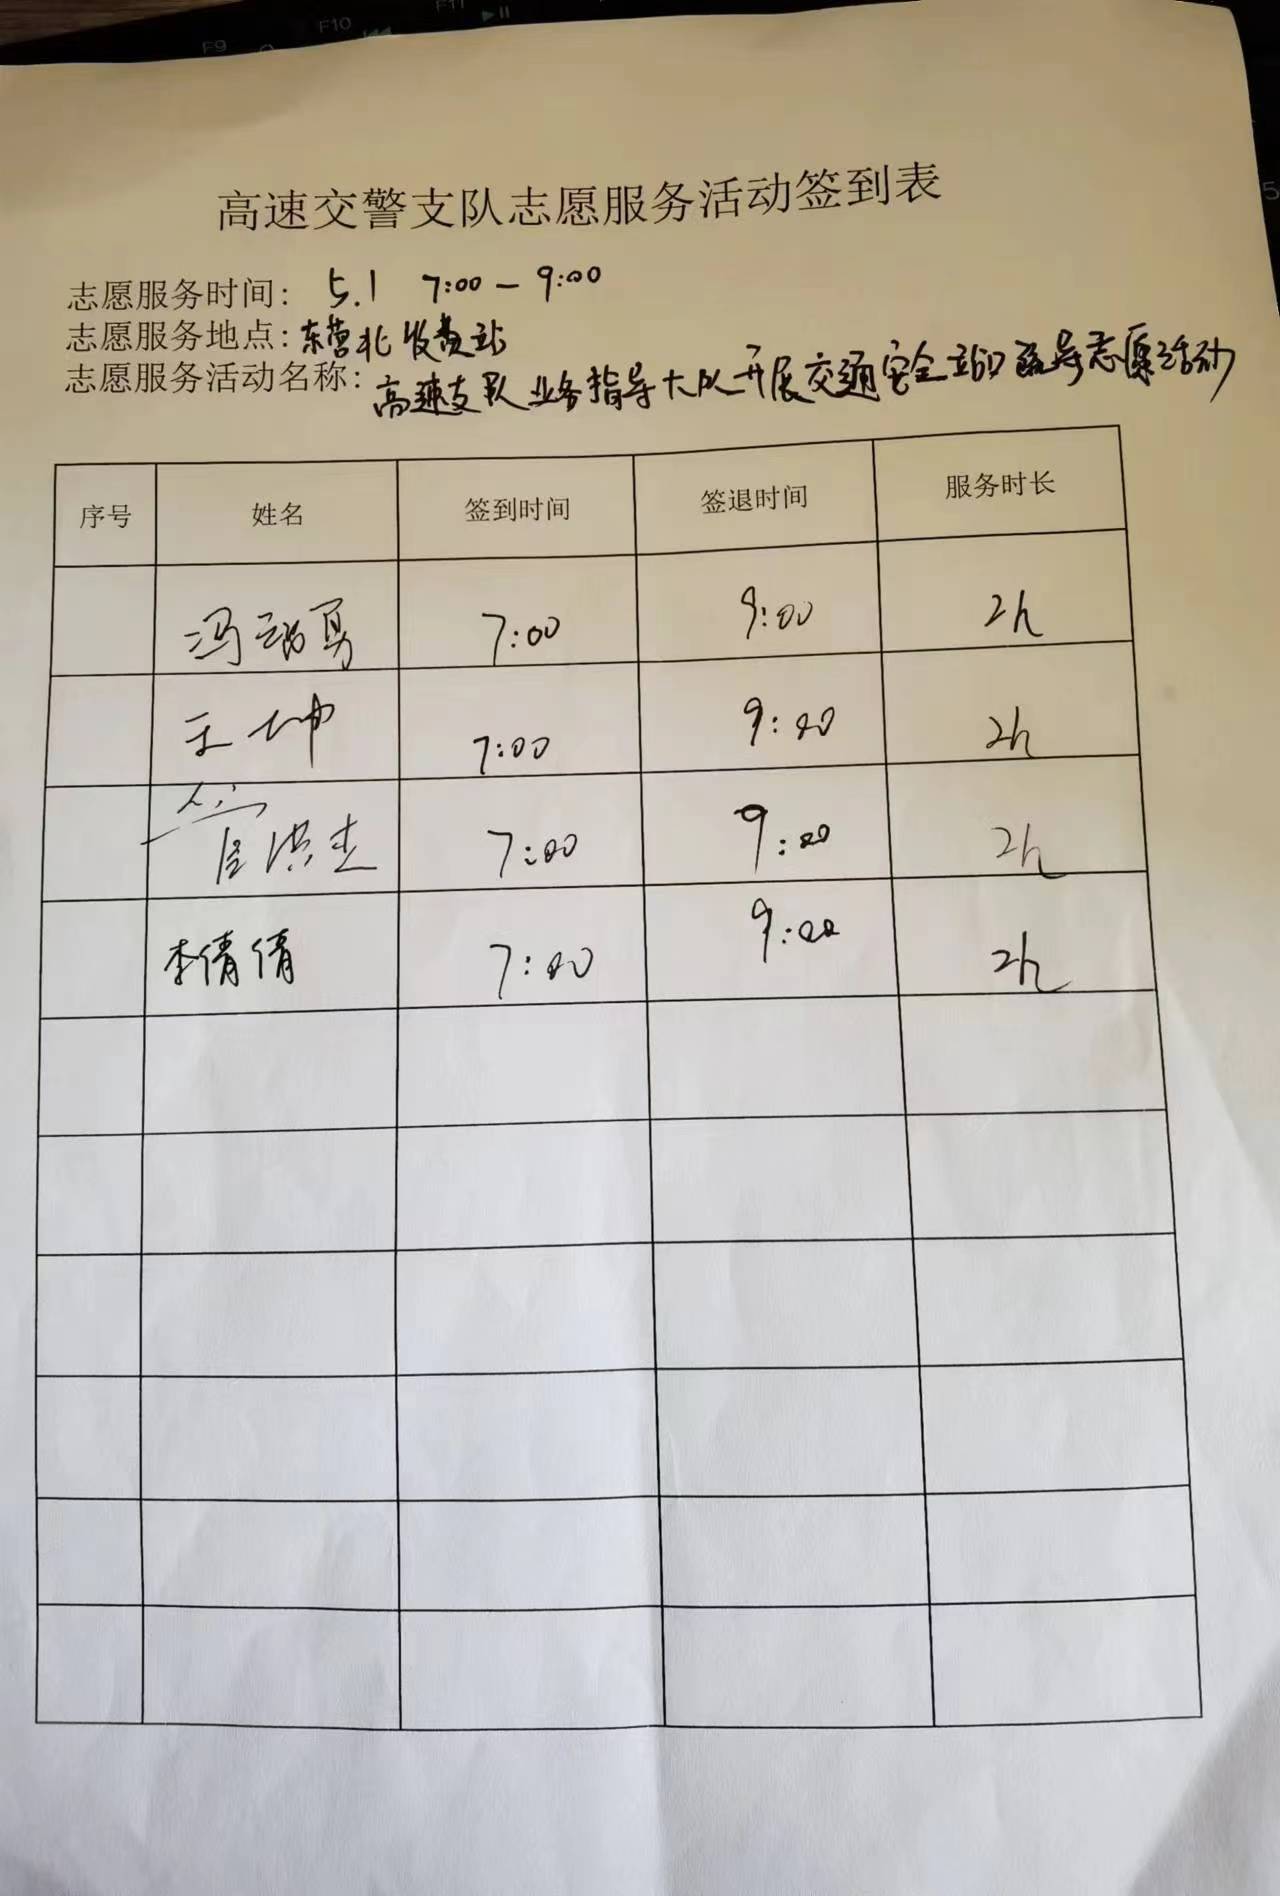 F9
F10
F11
高速交警支队志愿服务活动签到表
志愿服务时间： 5.1 7:00—9:00
志愿服务地点：东营北收费站
志愿服务活动名称：高速支队业务指导大队开展交通安全站口疏导志愿活动
序号 姓名 签到时间 签退时间 服务时长
冯动勇 7:00 9:00 2h
王坤 7:00 9:00 2h
洪杰 7:00 9:00 2h
李倩倩 7:00 9:00 2h
5